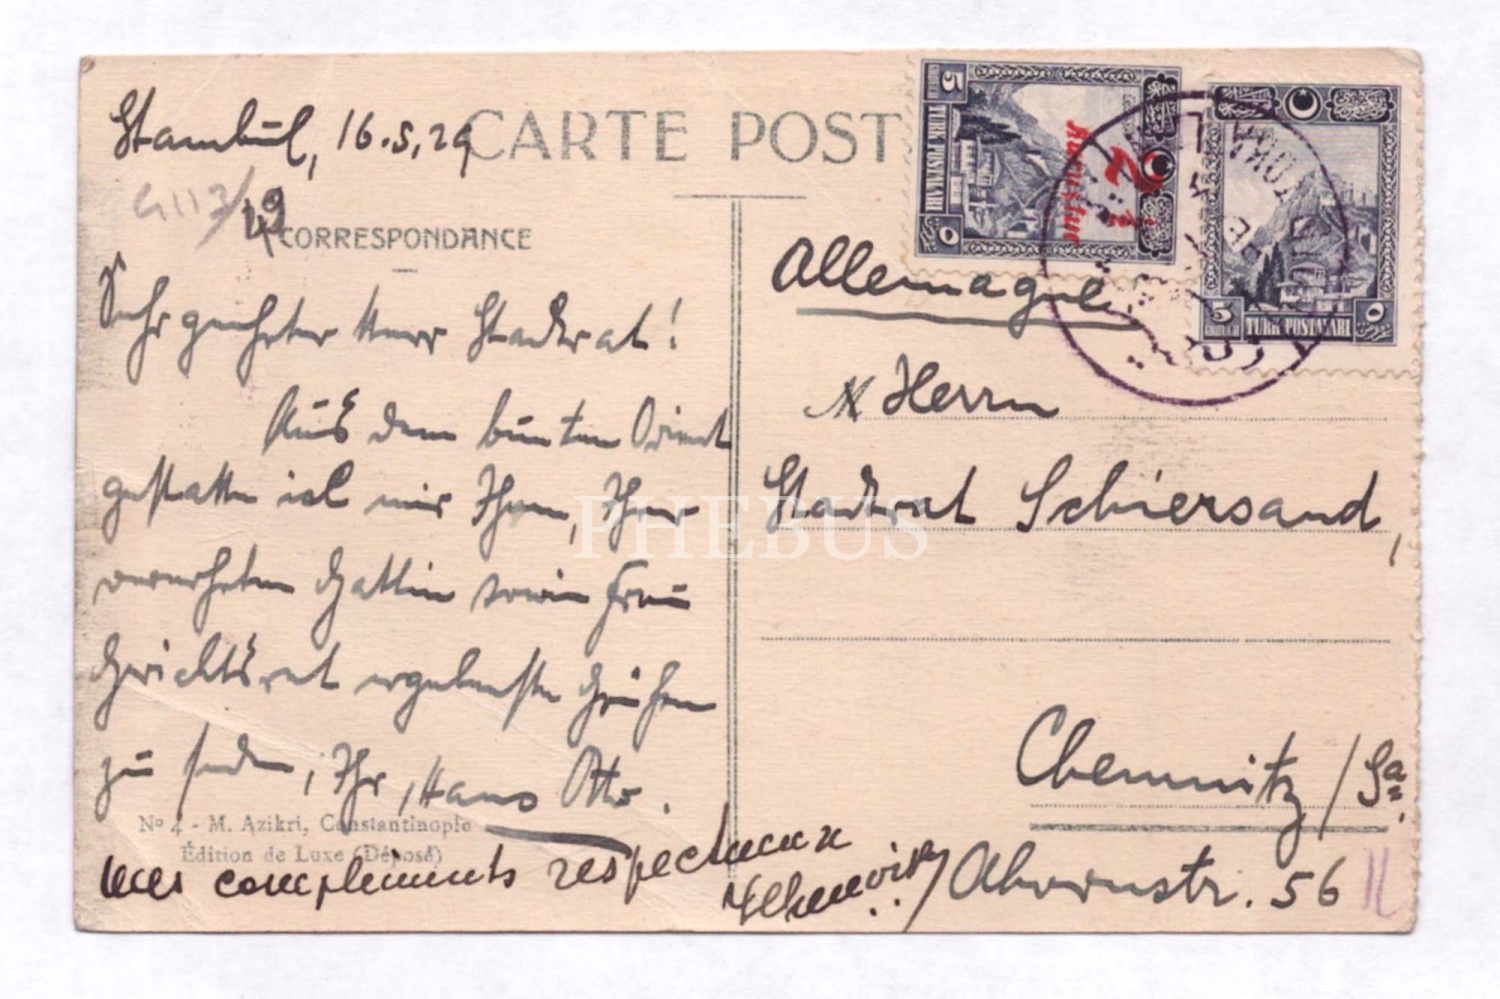 Stambul, 16.5.29
CARTE POST
G 117/
49
CORRESPONDANCE
Sehr geehrter Herr Stadtrat!
Aus dem bunten Orient
gestatte ich mir Ihnen, Ihrer
verehrten Gattin sowie Frau
Gerichtsrat ergebenste Grüße
zu senden, Ihr, Hans Otto.
Nº 4 - M. Azikri, Constantinople
Édition de Luxe (Déposé)
mes compliments respectueux
Allemagne
Herrn
Stadtrat Schiersand,
Chemnitz / Sa.
Ahornstr. 56 II
5 TÜRK POSTALARI ٥
2½ Kuruştur
5 GROUCH TÜRK POSTALARI ٥ غروش
PHEBUS